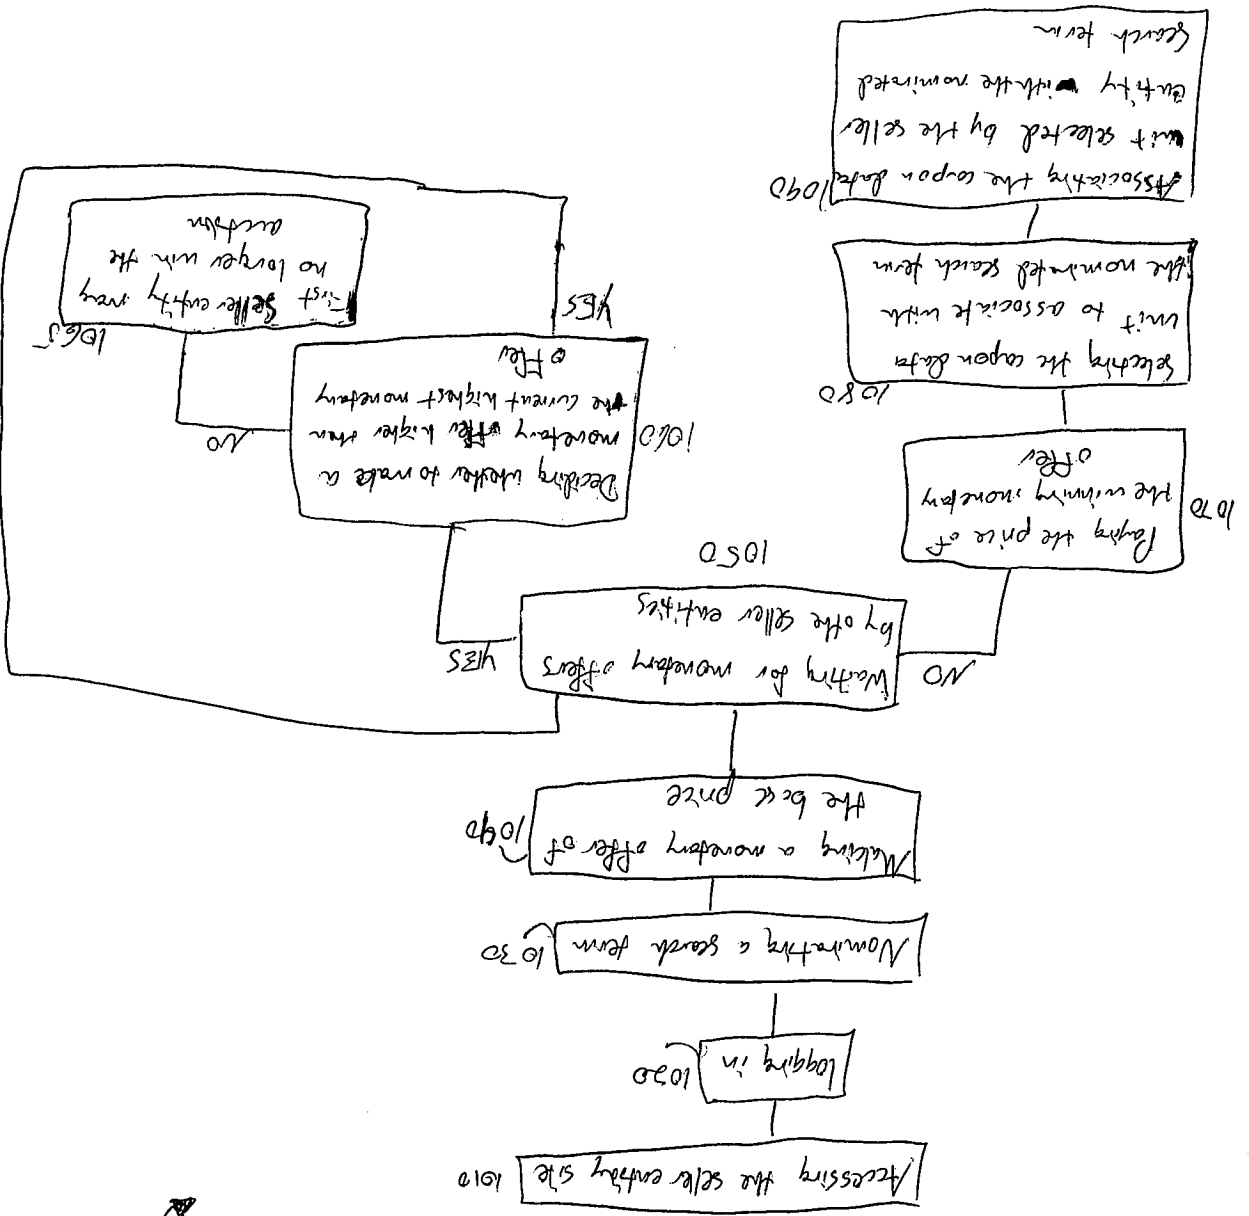 Accessing the seller entity site
1010
Logging in
1020
Nominating a search term
1030
Making a monetary offer of
the base price
1040
Waiting for monetary offers
by othe seller entities
1050
NO
YES
Paying the price of
the winning monetary
offer
1070
Deciding whether to make a
monetary offer higher than
the current highest monetary
offer
1060
NO
YES
First seller entity may
no longer win the
auction
1065
Selecting the coupon data
unit to associate with
the nominated search term
1080
Associating the coupon data
unit selected by the seller
entity with the nominated
search term
1090